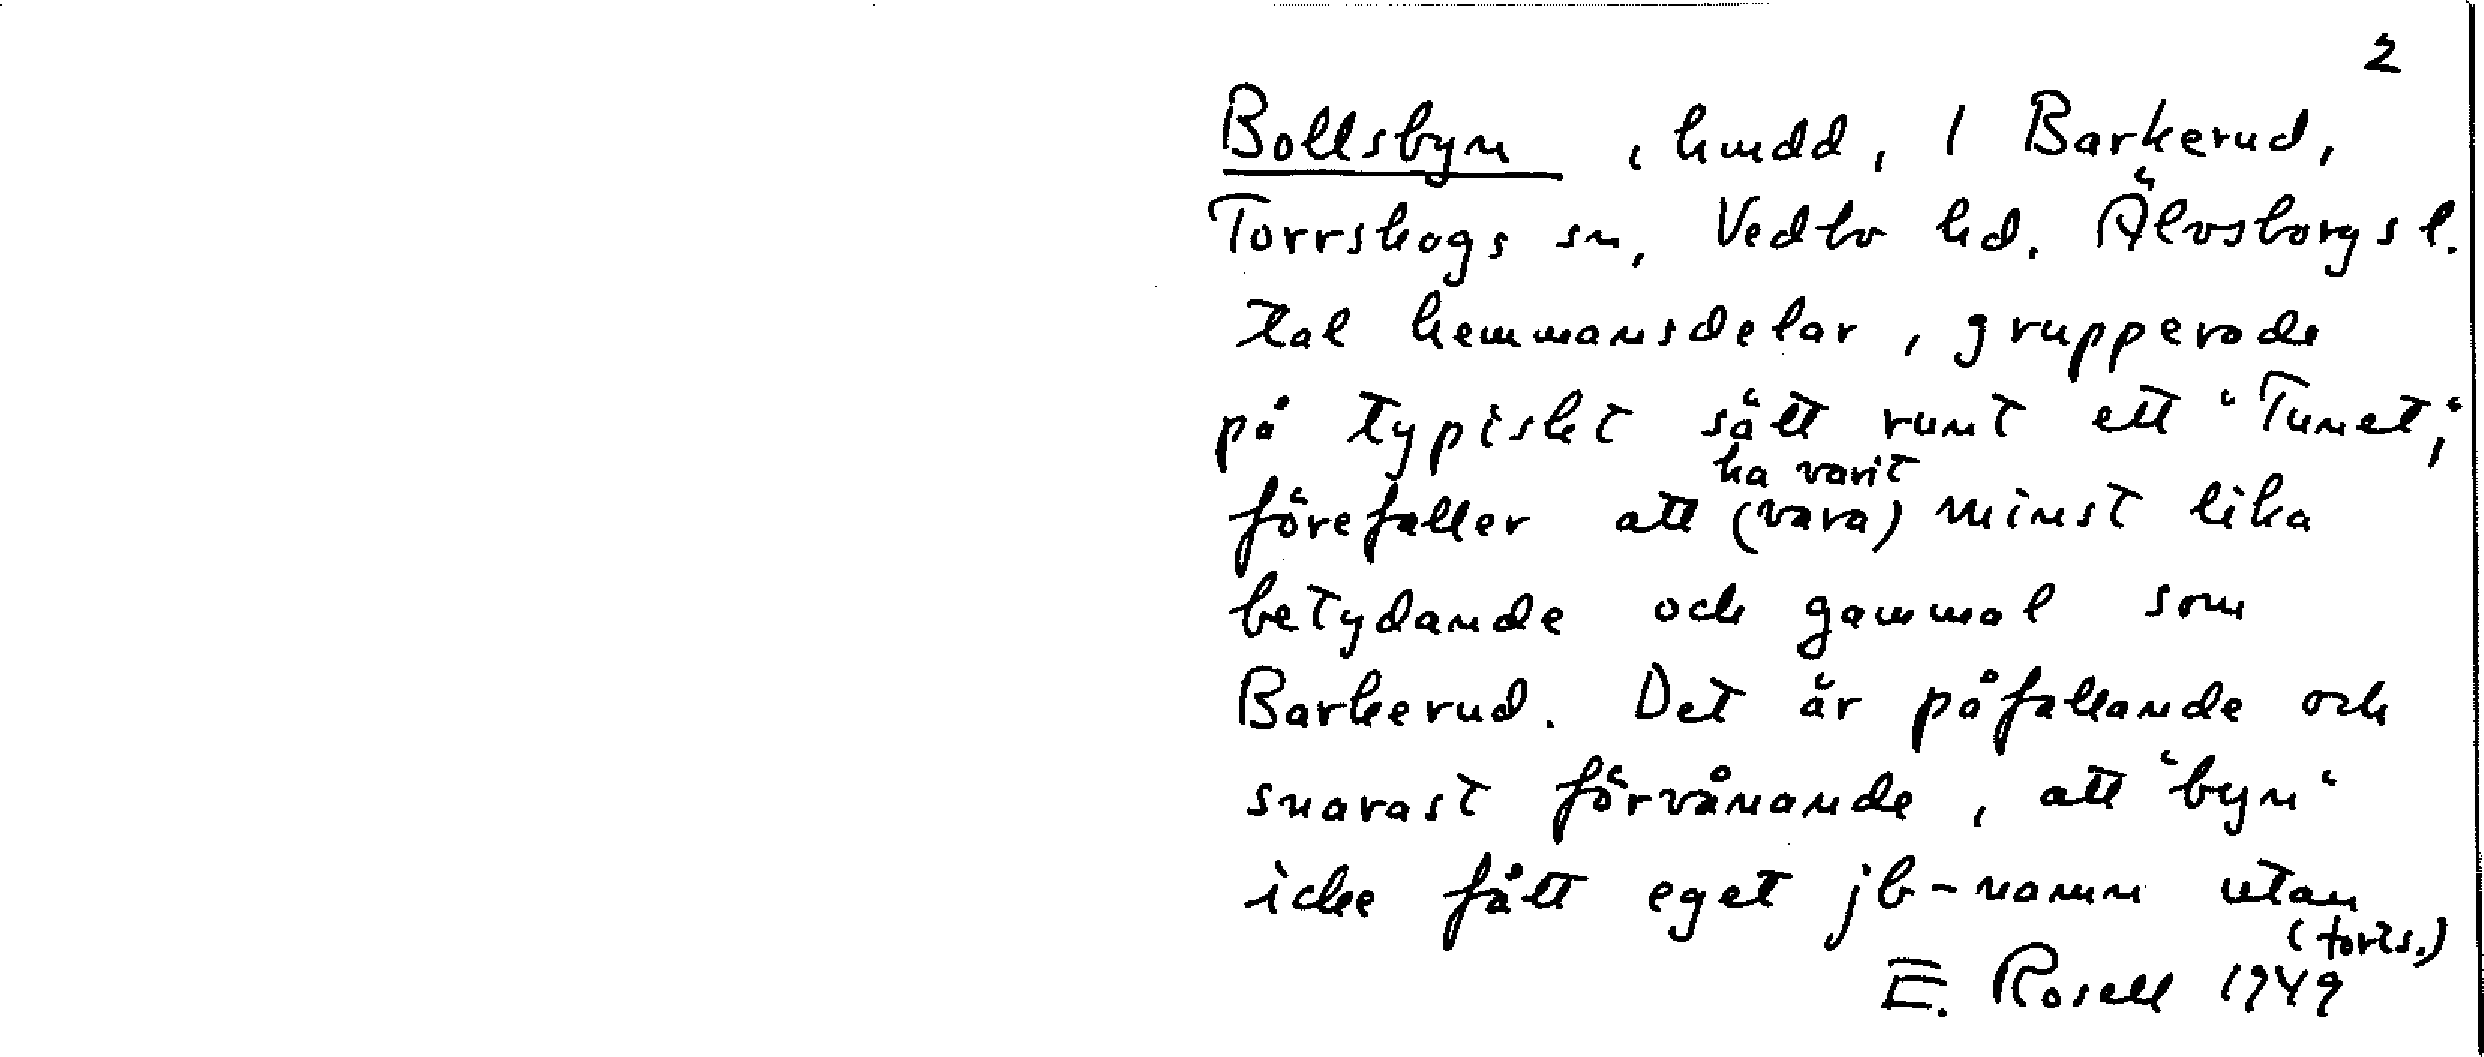 2
Bollsbyn , hmdd, 1 Barkerud,
Torrskogs sn, Vedbo hd. Älvsborgs l.
tal hemmansdelar, grupperade
på typiskt sätt runt ett "Tunet",
ha varit
förefaller att (vara) minst lika
betydande och gammal som
Barkerud. Det är påfallande och
snarast förvånande, att "byn"
icke fått eget jb-namn utan
(forts.)
E. Rosell 1949